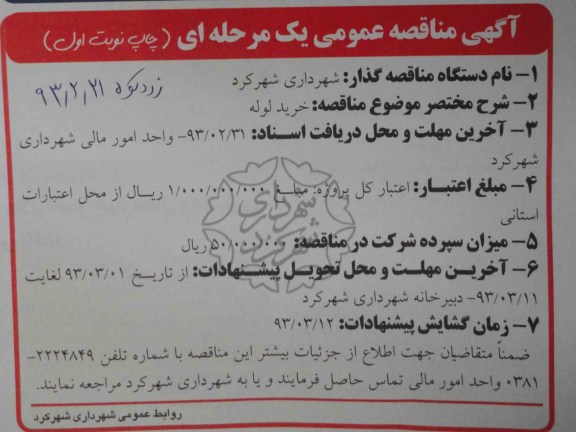 آگهی مناقصه عمومی یک مرحله ای (چاپ نوبت اول)
۹۳٫۲٫۲۱
۱- نام دستگاه مناقصه گذار: شهرداری شهرکرد
۲- شرح مختصر موضوع مناقصه: خرید لوله
۳- آخرین مهلت و محل دریافت اسناد: ۹۳/۰۲/۳۱- واحد امور مالی شهرداری
شهرکرد
۴- مبلغ اعتبار: اعتبار کل پروژه: مبلغ ۱/۰۰۰/۰۰۰/۰۰۰ ریال از محل اعتبارات
استانی
۵- میزان سپرده شرکت در مناقصه: ۵۰/۰۰۰/۰۰۰ ریال
۶- آخرین مهلت و محل تحویل پیشنهادات: از تاریخ ۹۳/۰۳/۰۱ لغایت
۹۳/۰۳/۱۱- دبیرخانه شهرداری شهرکرد
۷- زمان گشایش پیشنهادات: ۹۳/۰۳/۱۲
ضمناً متقاضیان جهت اطلاع از جزئیات بیشتر این مناقصه با شماره تلفن ۲۲۲۴۸۴۹-
۰۳۸۱ واحد امور مالی تماس حاصل فرمایند و یا به شهرداری شهرکرد مراجعه نمایند.
روابط عمومی شهرداری شهرکرد
شهرداری
شهرکرد